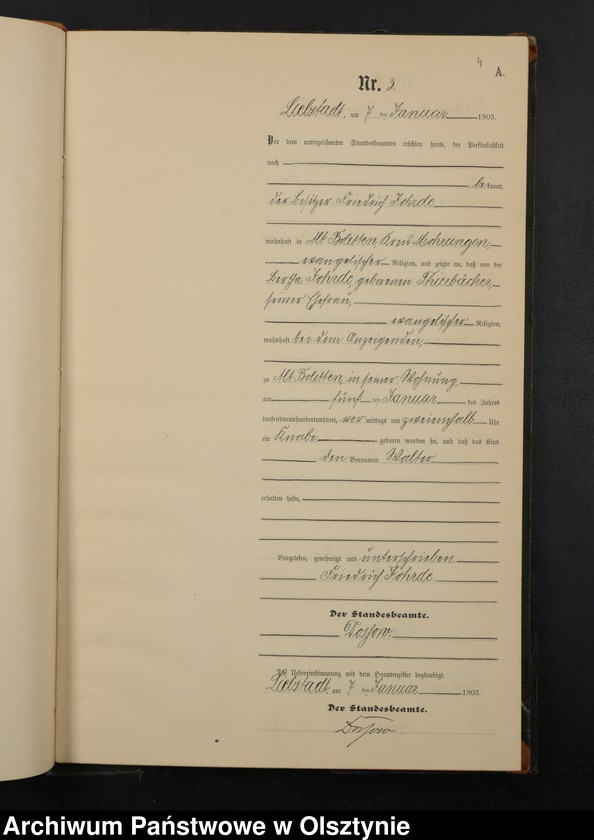 4
A.
Nr. 3.
Liebstadt, am 7 ten Januar 1903.
Vor dem unterzeichneten Standesbeamten erschien heute, der Persönlichkeit
nach
be kannt,
der Besitzer Friedrich
wohnhaft in Alt Bolitten, Kreis Mohrungen,
evangelischer Religion, und zeigte an, daß von der
Bertha geborenen
seiner Ehefrau,
evangelischer Religion,
wohnhaft bei dem Anzeigenden,
zu Alt Bolitten, in seiner Wohnung
am fünf ten Januar des Jahres
tausendneunhundertunddrei, vor mittags um zweieinhalb Uhr
ein Knabe geboren worden sei, und daß das Kind
den Vornamen Walter
erhalten habe,
Vorgelesen, genehmigt und unterschrieben
Friedrich
Der Standesbeamte.
Die Uebereinstimmung mit dem Hauptregister beglaubigt.
Liebstadt, am 7 ten Januar 1903.
Der Standesbeamte.
Archiwum Państwowe w Olsztynie